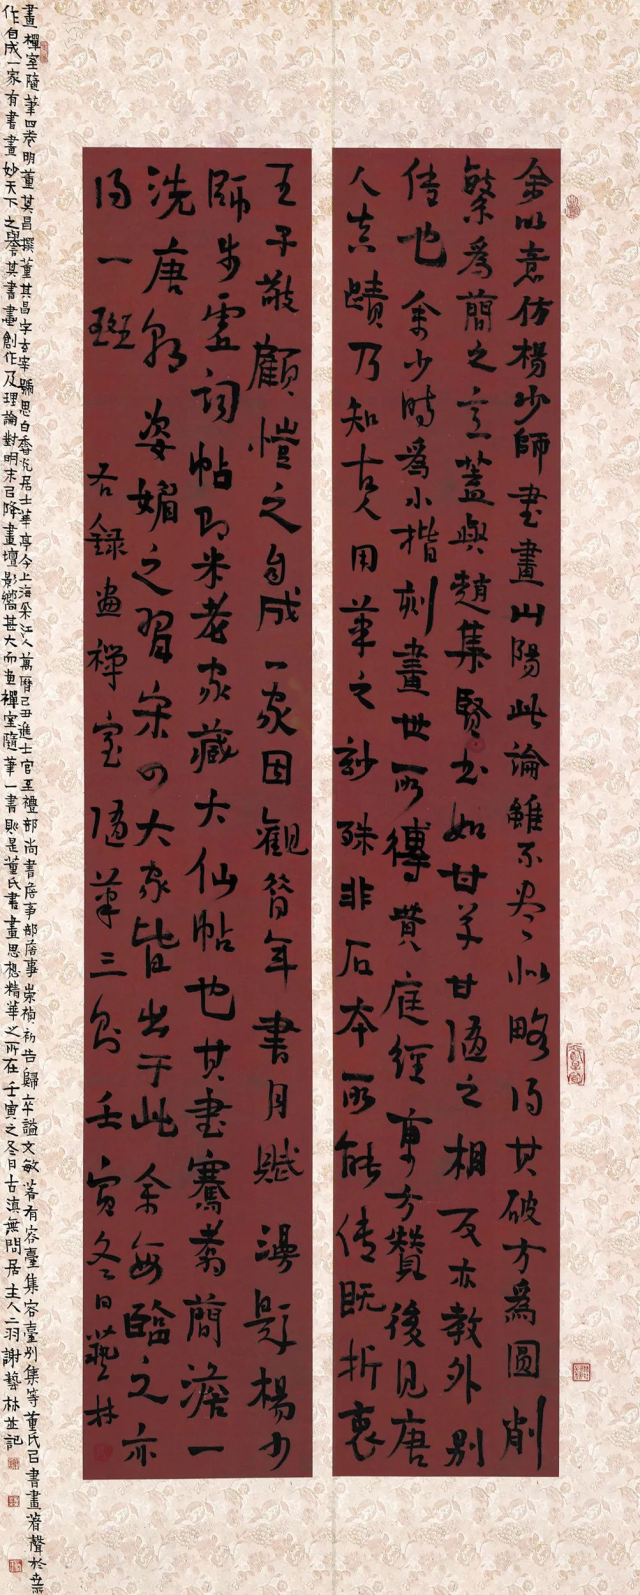 余以意仿楊少師書畫山陽此論雖不盡似略得其破方為圓削
繁為簡之意蓋與趙集賢書如甘草甘遂之相反亦教外別
傳也余少時為小楷刻畫世所傳黃庭經東方贊後見唐
人真蹟乃知古人用筆之妙殊非石本所能傳既折衷
王子敬顧愷之自成一家因觀昔年書月賦漫題楊少
師步虛詞帖即米老家藏大仙帖也其書騫翥簡澹一
洗唐朝姿媚之習宋四大家皆出于此余每臨之亦
得一斑
右錄畫禪室隨筆三則壬寅冬日藝林
畫禪室隨筆四卷明董其昌撰董其昌字玄宰號思白香光居士華亭今上海松江人萬曆己丑進士官至禮部尚書詹事部詹事崇禎初告歸卒謚文敏著有容臺集容臺別集等董氏以書畫著聲於世
作自成一家有書畫妙天下之譽其書畫創作及理論對明末以降畫壇影嚮甚大而畫禪室隨筆一書則是董氏書畫思想精華之所在壬寅之冬日古滇無問居主人二羽謝藝林並記